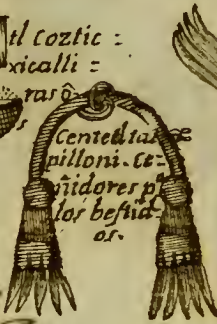 tl coztic :
xicalli :
ras õ
s
Centetl tal
pilloni. Ce-
ñidores pª
los bestid-
os.